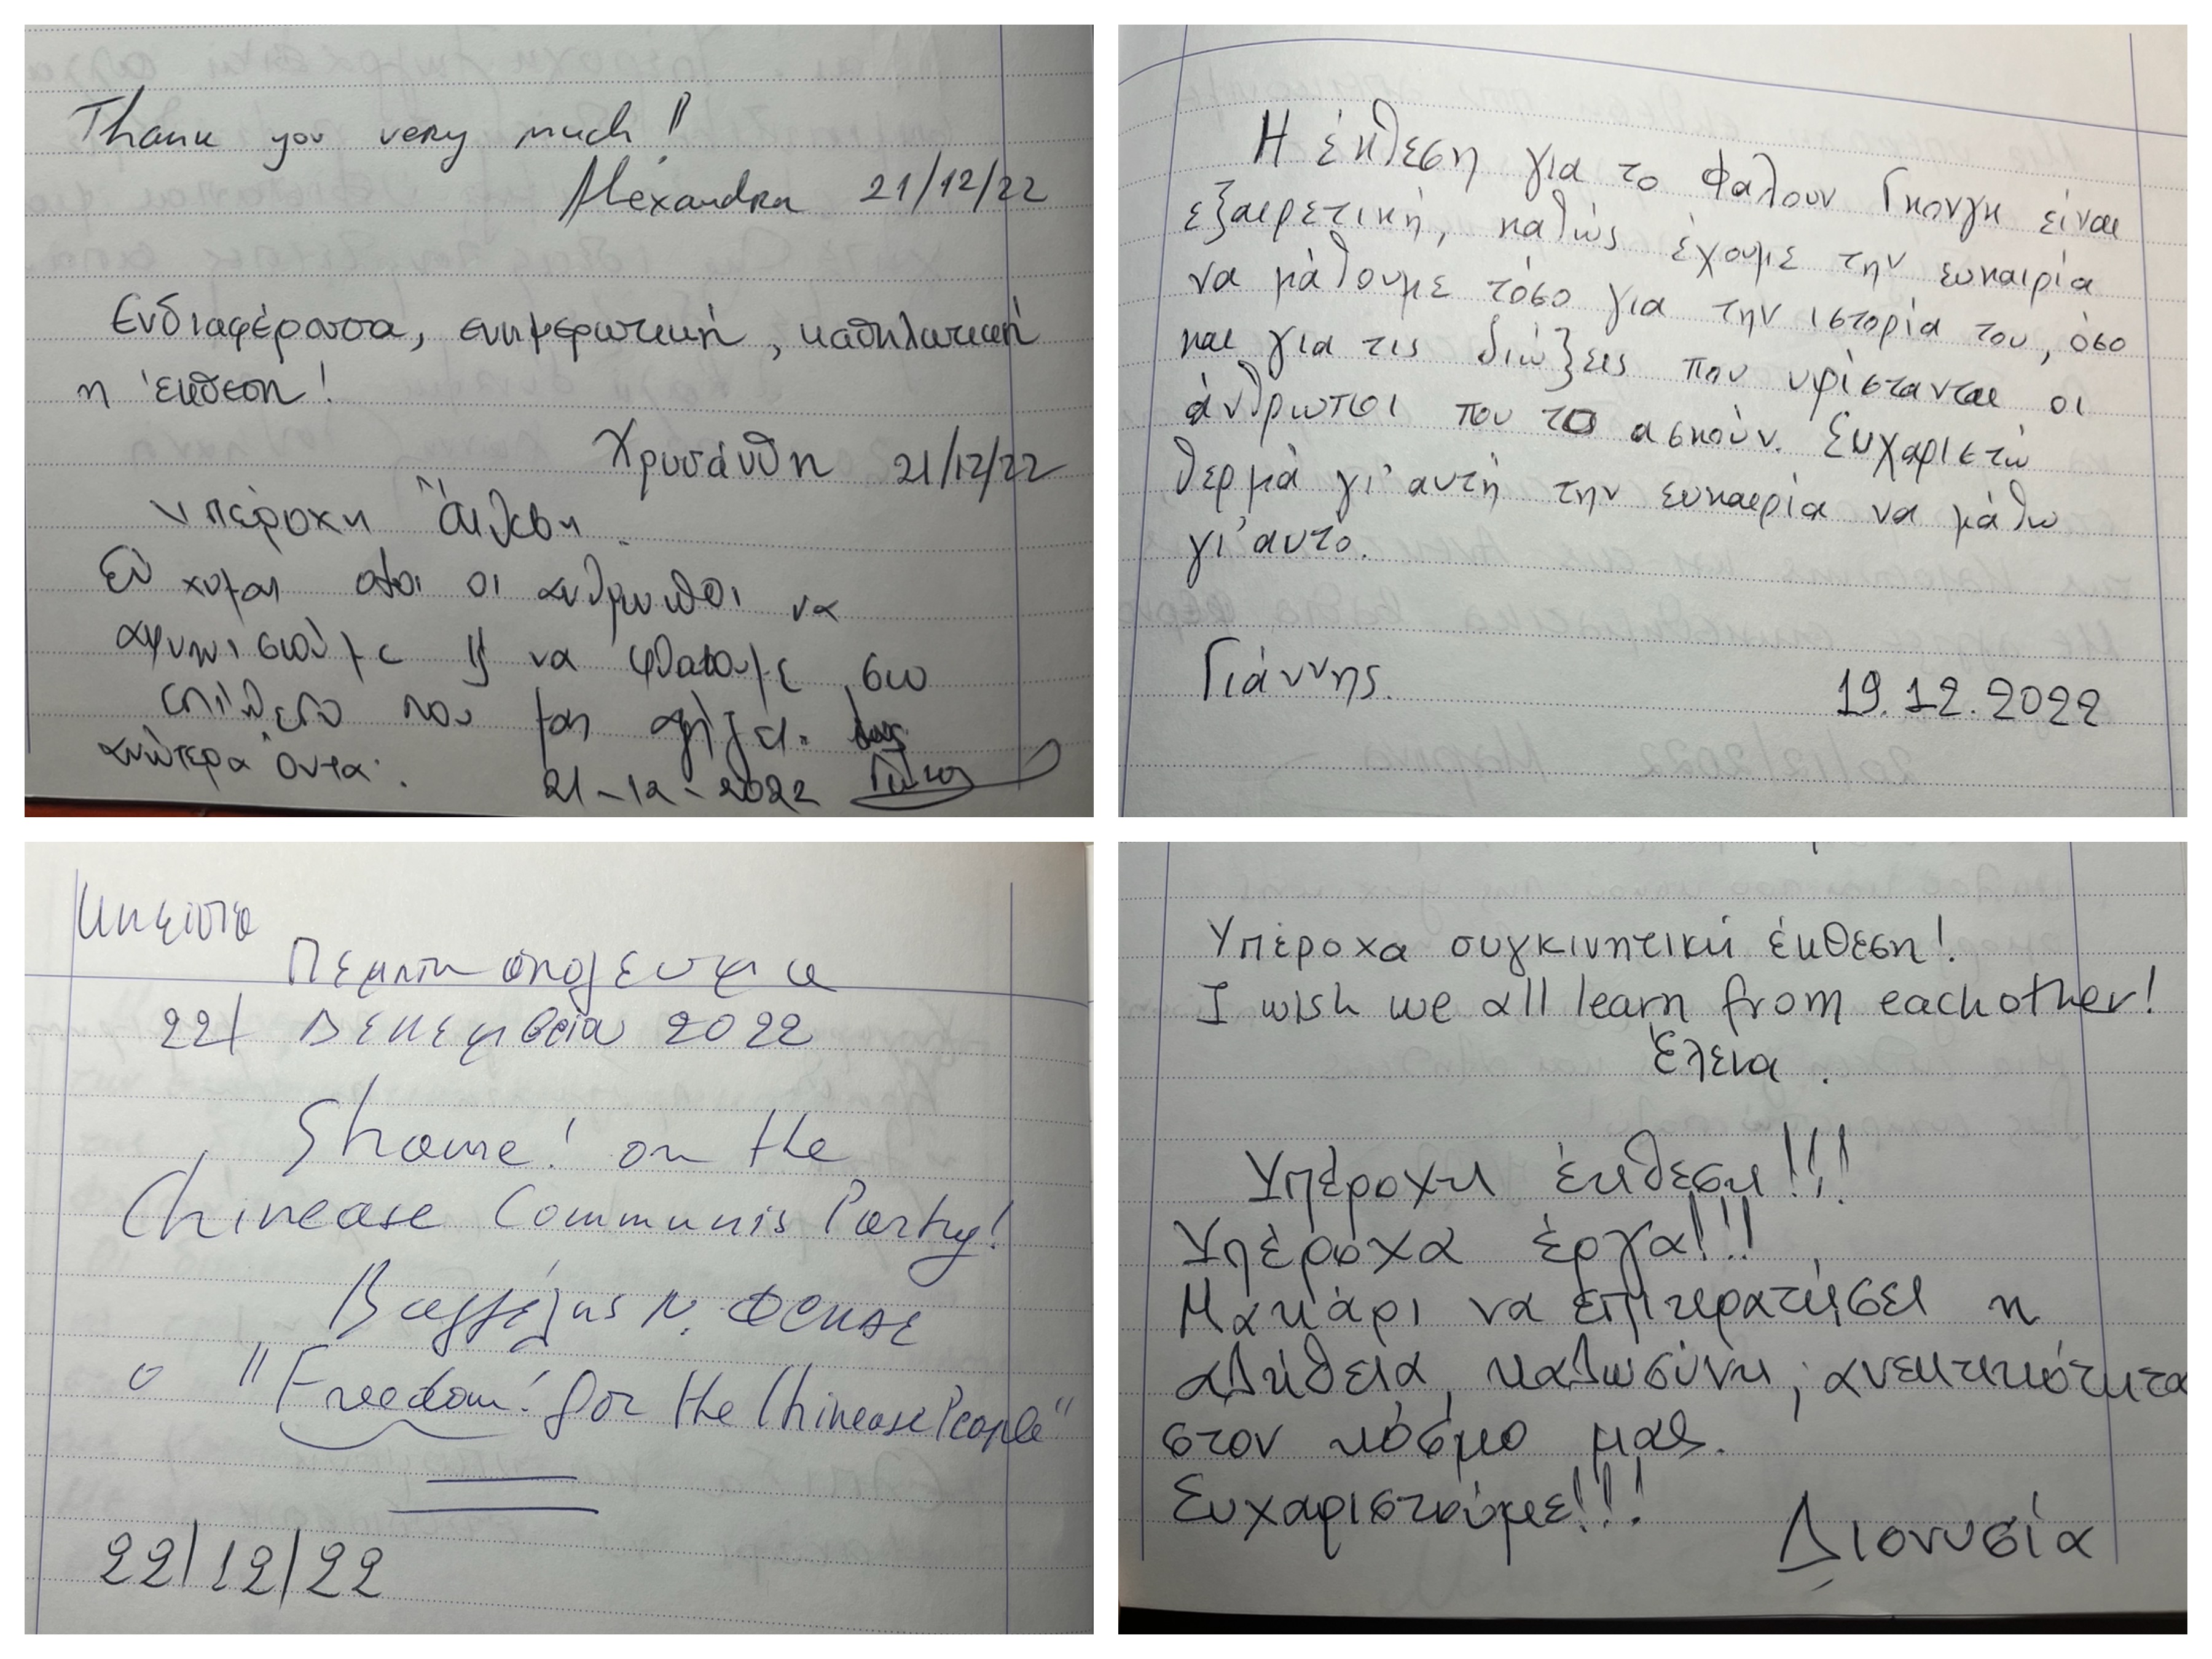 Thank you very much!
Alexandra 21/12/22
Ενδιαφέρουσα, ενημερωτική, καθηλωτική
η έκθεση!
Χρυσάνθη 21/12/22
Υπέροχη
Εύχομαι όλοι οι άνθρωποι να
αφυπνιστούμε να φθάσουμε στο
επίπεδο που μας αξίζει. σας
ανώτερα όντα.
21-12-2022
Η έκθεση για το Φαλουν Γκονγκ είναι
εξαιρετική, καθώς έχουμε την ευκαιρία
να μάθουμε τόσο για την ιστορία του, όσο
και για τις διώξεις που υφίστανται οι
άνθρωποι που το ασκούν. Ευχαριστώ
θερμά γι' αυτή την ευκαιρία να μάθω
γι' αυτο.
Γιάννης. 19.12.2022
Πεμπτη
22/ Δεκεμβρίου 2022
Shame! on the
Chinease Communis Party!
Βαγγέλης Ν.
"Freedom! for the Chinease People"
22/12/22
Υπέροχα συγκινητική έκθεση!
I wish we all learn from eachother!
Έλενα.
Υπέροχη έκθεση!!!
Υπέροχα έργα!!!
Μακάρι να επικρατήσει η
αλήθεια, καλωσύνη, ανεκτικότητα
στον κόσμο μας.
Ευχαριστούμε!!!
Διονυσία